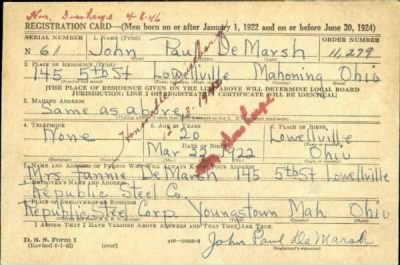 Hon. Discharge 4-2-46
REGISTRATION CARD—(Men born on or after January 1, 1922 and on or before June 30, 1924)
SERIAL NUMBER 1. NAME (Print) ORDER NUMBER
N 61 John Paul DeMarsh 11,279
2. PLACE OF RESIDENCE (Print)
145 5th St Lowellville Mahoning Ohio
[THE PLACE OF RESIDENCE GIVEN ON THE LINE ABOVE WILL DETERMINE LOCAL BOARD
JURISDICTION; LINE 2 OF REGISTRATION CERTIFICATE WILL BE IDENTICAL]
3. MAILING ADDRESS
Same as above
4. TELEPHONE 5. AGE IN YEARS 6. PLACE OF BIRTH
None 20 Lowellville
DATE OF BIRTH
Mar 22 1922 Ohio
7. NAME AND ADDRESS OF PERSON WHO WILL ALWAYS KNOW YOUR ADDRESS
Mrs Fannie DeMarsh 145 5th St Lowellville
8. EMPLOYER'S NAME AND ADDRESS
Republic Steel Co.
9. PLACE OF EMPLOYMENT OR BUSINESS
Republic Steel Corp Youngstown Mah Ohio
I AFFIRM THAT I HAVE VERIFIED ABOVE ANSWERS AND THAT THEY ARE TRUE.
D. S. S. Form 1
(Revised 6-1-42)
John Paul DeMarsh